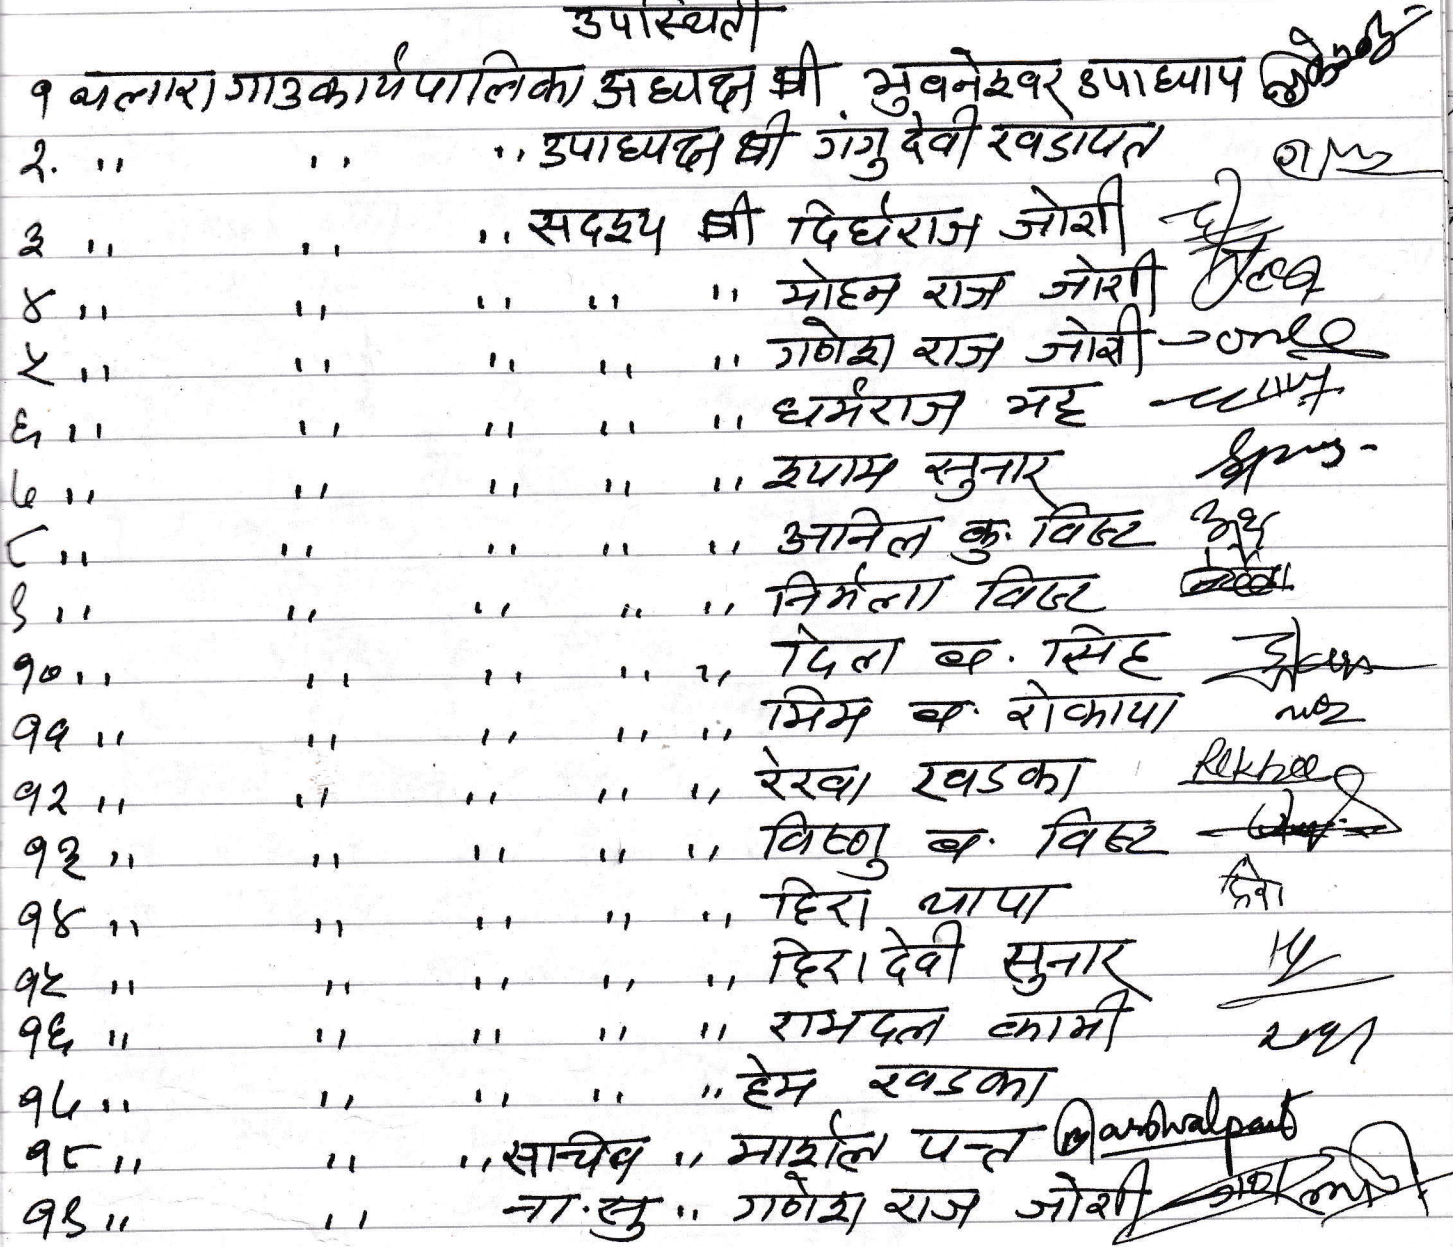 उपस्थिती
१ थलारा गाउकार्यपालिका अध्यक्ष श्री भुवनेश्वर उपाध्याय
२. ,, ,, ,, उपाध्यक्ष श्री गंगु देवी खडायत
३ ,, ,, ,, सदश्य श्री दिर्घराज जोशी
४ ,, ,, ,, ,, ,, मोहन राज जोशी
५ ,, ,, ,, ,, ,, गणेश राज जोशी
६ ,, ,, ,, ,, ,, धर्मराज भट्ट
७ ,, ,, ,, ,, ,, श्याम सुनार
८ ,, ,, ,, ,, ,, अनिल कु. विष्ट
९ ,, ,, ,, ,, ,, निर्मला विष्ट
१० ,, ,, ,, ,, ,, दिल ब. सिंह
११ ,, ,, ,, ,, ,, भिम ब. रोकाया
१२ ,, ,, ,, ,, ,, रेखा खडका Rekhaa
१३ ,, ,, ,, ,, ,, विष्णु ब. विष्ट
१४ ,, ,, ,, ,, ,, हिरा थापा हिरा
१५ ,, ,, ,, ,, ,, हिरा देवी सुनार
१६ ,, ,, ,, ,, ,, रामदल कामी
१७ ,, ,, ,, ,, ,, हेम खडका
१८ ,, ,, ,, सचिव ,, मार्शल पन्त Marshalpant
१९ ,, ,, ना.सु ,, गणेश राज जोशी